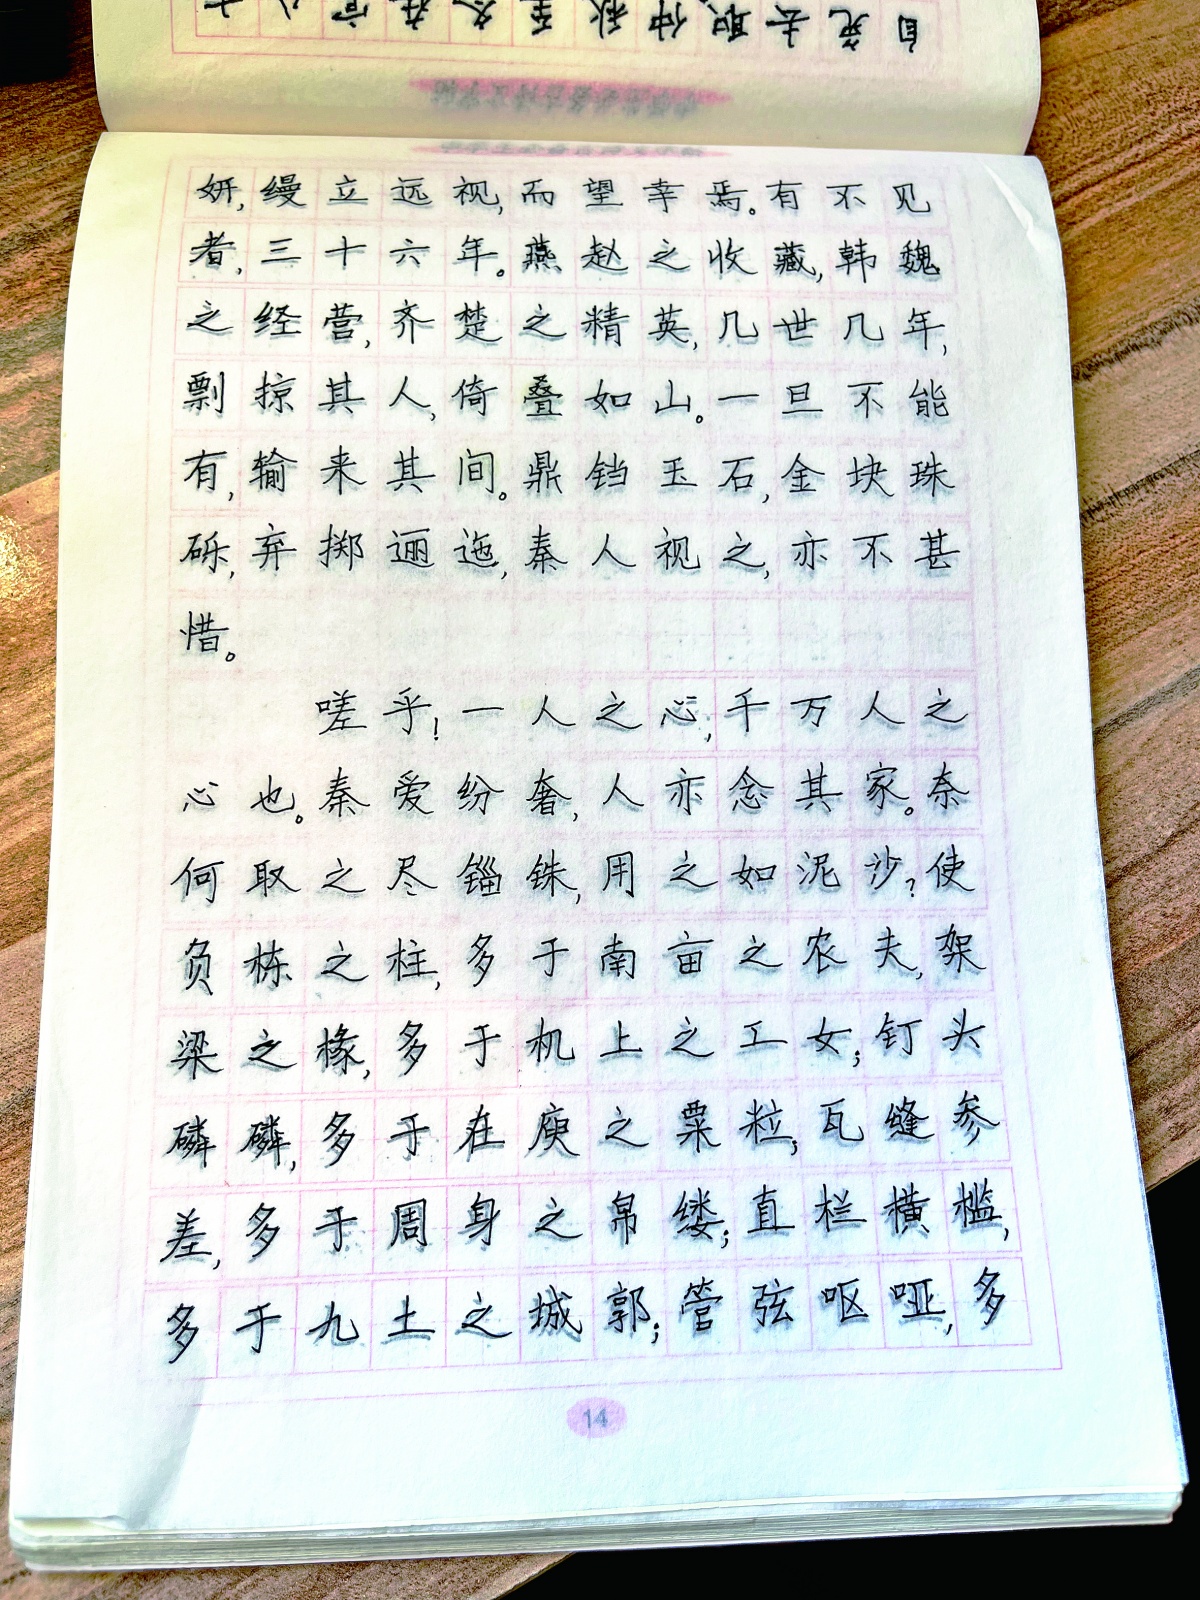 自充去取仲秋至冬在官八
妍,缦立远视,而望幸焉。有不见
者,三十六年。燕赵之收藏,韩魏
之经营,齐楚之精英,几世几年,
剽掠其人,倚叠如山。一旦不能
有,输来其间。鼎铛玉石,金块珠
砾,弃掷逦迤,秦人视之,亦不甚
惜。
嗟乎!一人之心,千万人之
心也。秦爱纷奢,人亦念其家。奈
何取之尽锱铢,用之如泥沙?使
负栋之柱,多于南亩之农夫,架
梁之椽,多于机上之工女;钉头
磷磷,多于在庾之粟粒;瓦缝参
差,多于周身之帛缕;直栏横槛,
多于九土之城郭;管弦呕哑,多
14